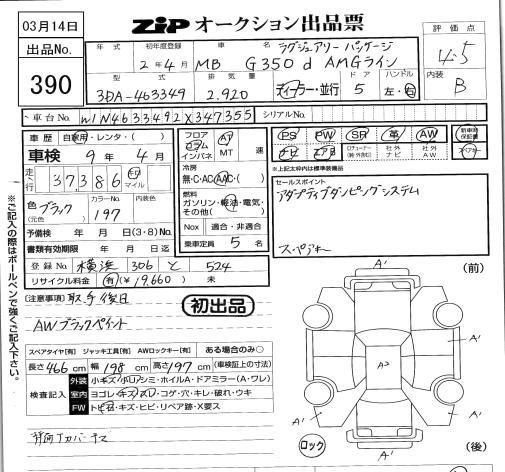 03月14日
ZIP オークション出品票
出品No.
390
年式 初年度登録 車名 評価点
2年4月 MB G350d ラグジュアリーパッケージ AMGライン
4.5
型式 排気量 ドア ハンドル
3DA-463349 2.920 ディーラー・並行 5 左・右
内装
B
車台No. W1N4633492X347355 シリアルNo.
車歴 自家用・レンタ・( )
車検 9年4月
走行 37386 km マイル
色 ブラック (元色) カラーNo. 197 内装色
予備検 年 月 日(3・8)
書類有効期限 年 月 日迄
登録No. 横浜 306 と 524
リサイクル料金 有(¥19,660) 未
フロア コラム インパネ AT MT 速
冷房 無・C・AC・AAC・( )
燃料 ガソリン・軽油・電気・その他( )
Nox 適合・非適合
乗車定員 5 名
PS PW SR 革 AW
ナビ エアB 社外ナビ 社外AW
※上記太枠内は標準装備品
セールスポイント
アダプティブダンピングシステム
スペアキー
(注意事項) 取手後日
初出品
AWブラックペイント
スペアタイヤ[有] ジャッキ工具[有] AWロックキー[有] ある場合のみ○
長さ466cm 幅198cm 高さ197cm (車検証上の寸法)
検査記入 外装 小キズ・小凹・シミ・ホイルA・ドアミラー(A・ワレ)
室内 ヨゴレ・キズ・スレ・コゲ・穴・キレ・破れ・ウキ
FW トビ石・キズ・ヒビ・リペア跡・X要ス
※ご記入の際はボールペンで強くご記入下さい。
(前)
A'
A'
A2
A'
A'
A'
ロック
(後)